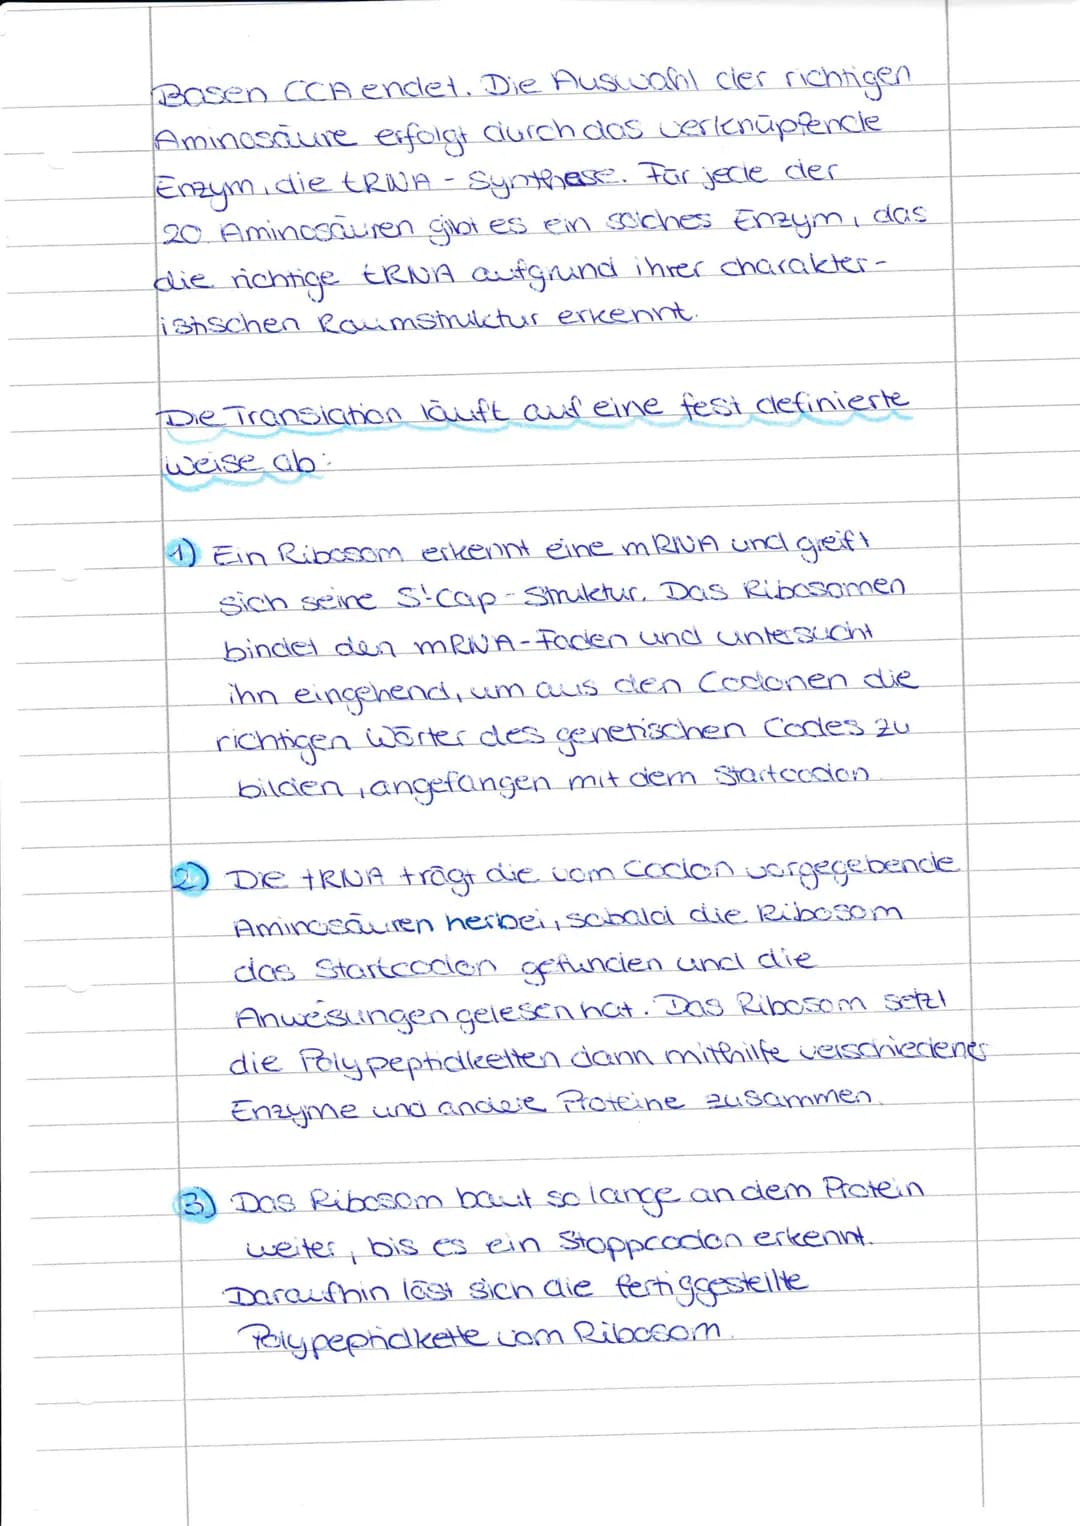 Basen CCA endet. Die Auswahl der richtigen
Aminosäure erfolgt durch das verknüpfende
Enzym, die tRNA - Synthese. Für jede der
20 Aminosäuren gibt es ein solches Enzym, das
die richtige tRNA aufgrund ihrer charakter-
istischen Raumstruktur erkennt.
Die Translation läuft auf eine fest definierte
weise ab:
1) Ein Ribosom erkennt eine mRNA und greift
sich seine 5'Cap - Struktur. Das Ribosomen
bindet den mRNA-Faden und untersucht
ihn eingehend, um aus den Codonen die
richtigen Wörter des genetischen Codes zu
bilden, angefangen mit dem Startcodon
2) Die tRNA trägt die vom Codon vorgegebende
Aminosäuren herbei, sobald die Ribosom
das Startcodon gefunden und die
Anweisungen gelesen hat. Das Ribosom setzt
die Polypeptidketten dann mithilfe verschiedener
Enzyme und andere Proteine zusammen.
3) Das Ribosom baut so lange an dem Protein
weiter, bis es ein Stoppcodon erkennt.
Daraufhin löst sich die fertiggestellte
Polypeptidkette vom Ribosom.